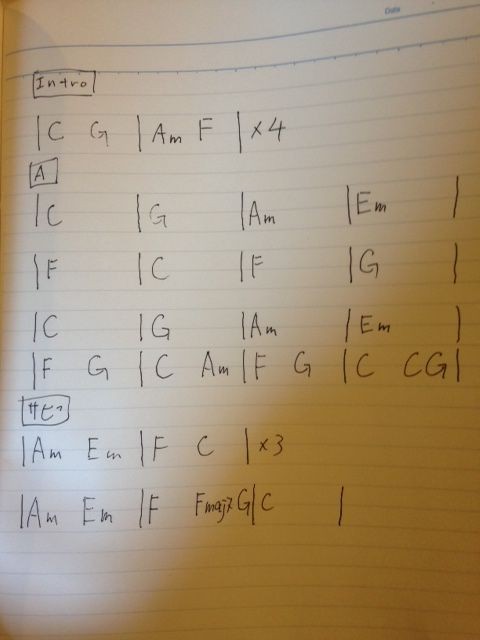 Date
Intro
|C G |Am F |×4
A
|C |G |Am |Em |
|F |C |F |G |
|C |G |Am |Em |
|F G |C Am|F G |C CG|
サビ
|Am Em |F C |×3
|Am Em |F Fmaj7 G|C |